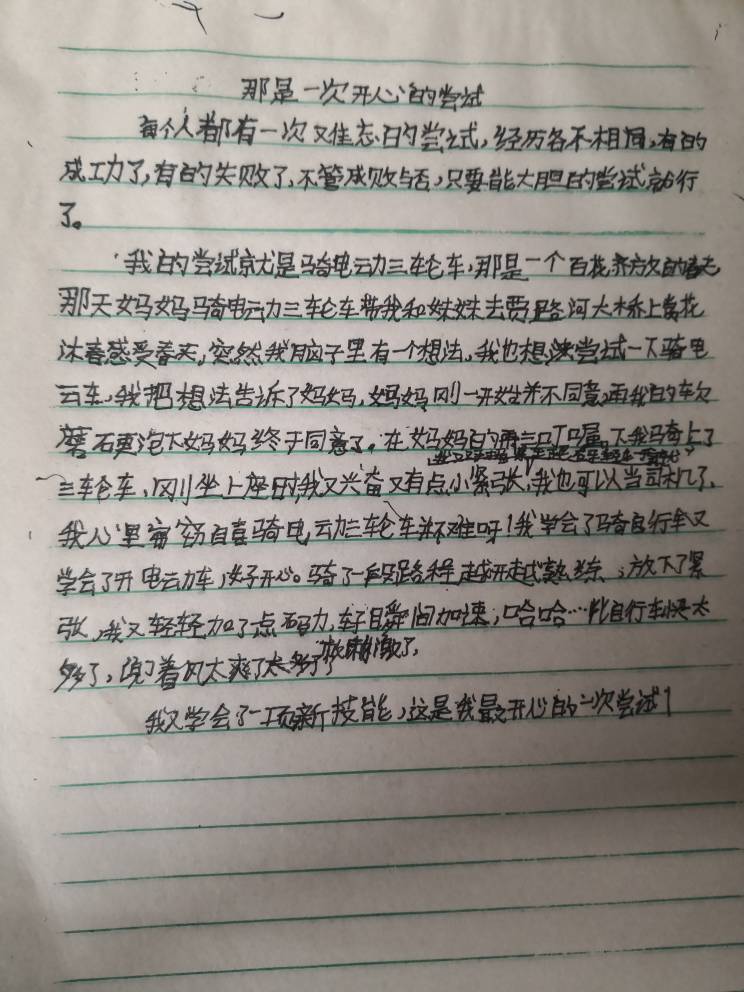 那是一次开心的尝试
每个人都有一次又难忘的尝试,经历各不相同,有的
成功了,有的失败了,不管成败与否,只要能大胆的尝试就行
了。
我的尝试就是骑电动三轮车,那是一个百花齐放的春天,
那天妈妈骑电动三轮车带我和妹妹去贾路河大桥上赏花
沐春感受春天,突然我脑子里有一个想法,我也想尝试一下骑电
云车,我把想法告诉了妈妈,妈妈刚一开始并不同意,再我的软
磨石更泡下妈妈终于同意了。在妈妈的再三叮嘱下我骑上了
三轮车,刚坐上座时,我又兴奋又有点小紧张,我也可以当司机了,
我心里窃喜骑电动三轮车并不难呀!我学会了骑自行车又
学会了开电动车,好开心。骑了一段路程越开越熟练,放下了紧
张,我又轻轻加了点码力,车子瞬间加速,哈哈…比自行车快太
多了,吹着风太爽了太刺激了,
我又学会了一项新技能,这是我最开心的一次尝试!